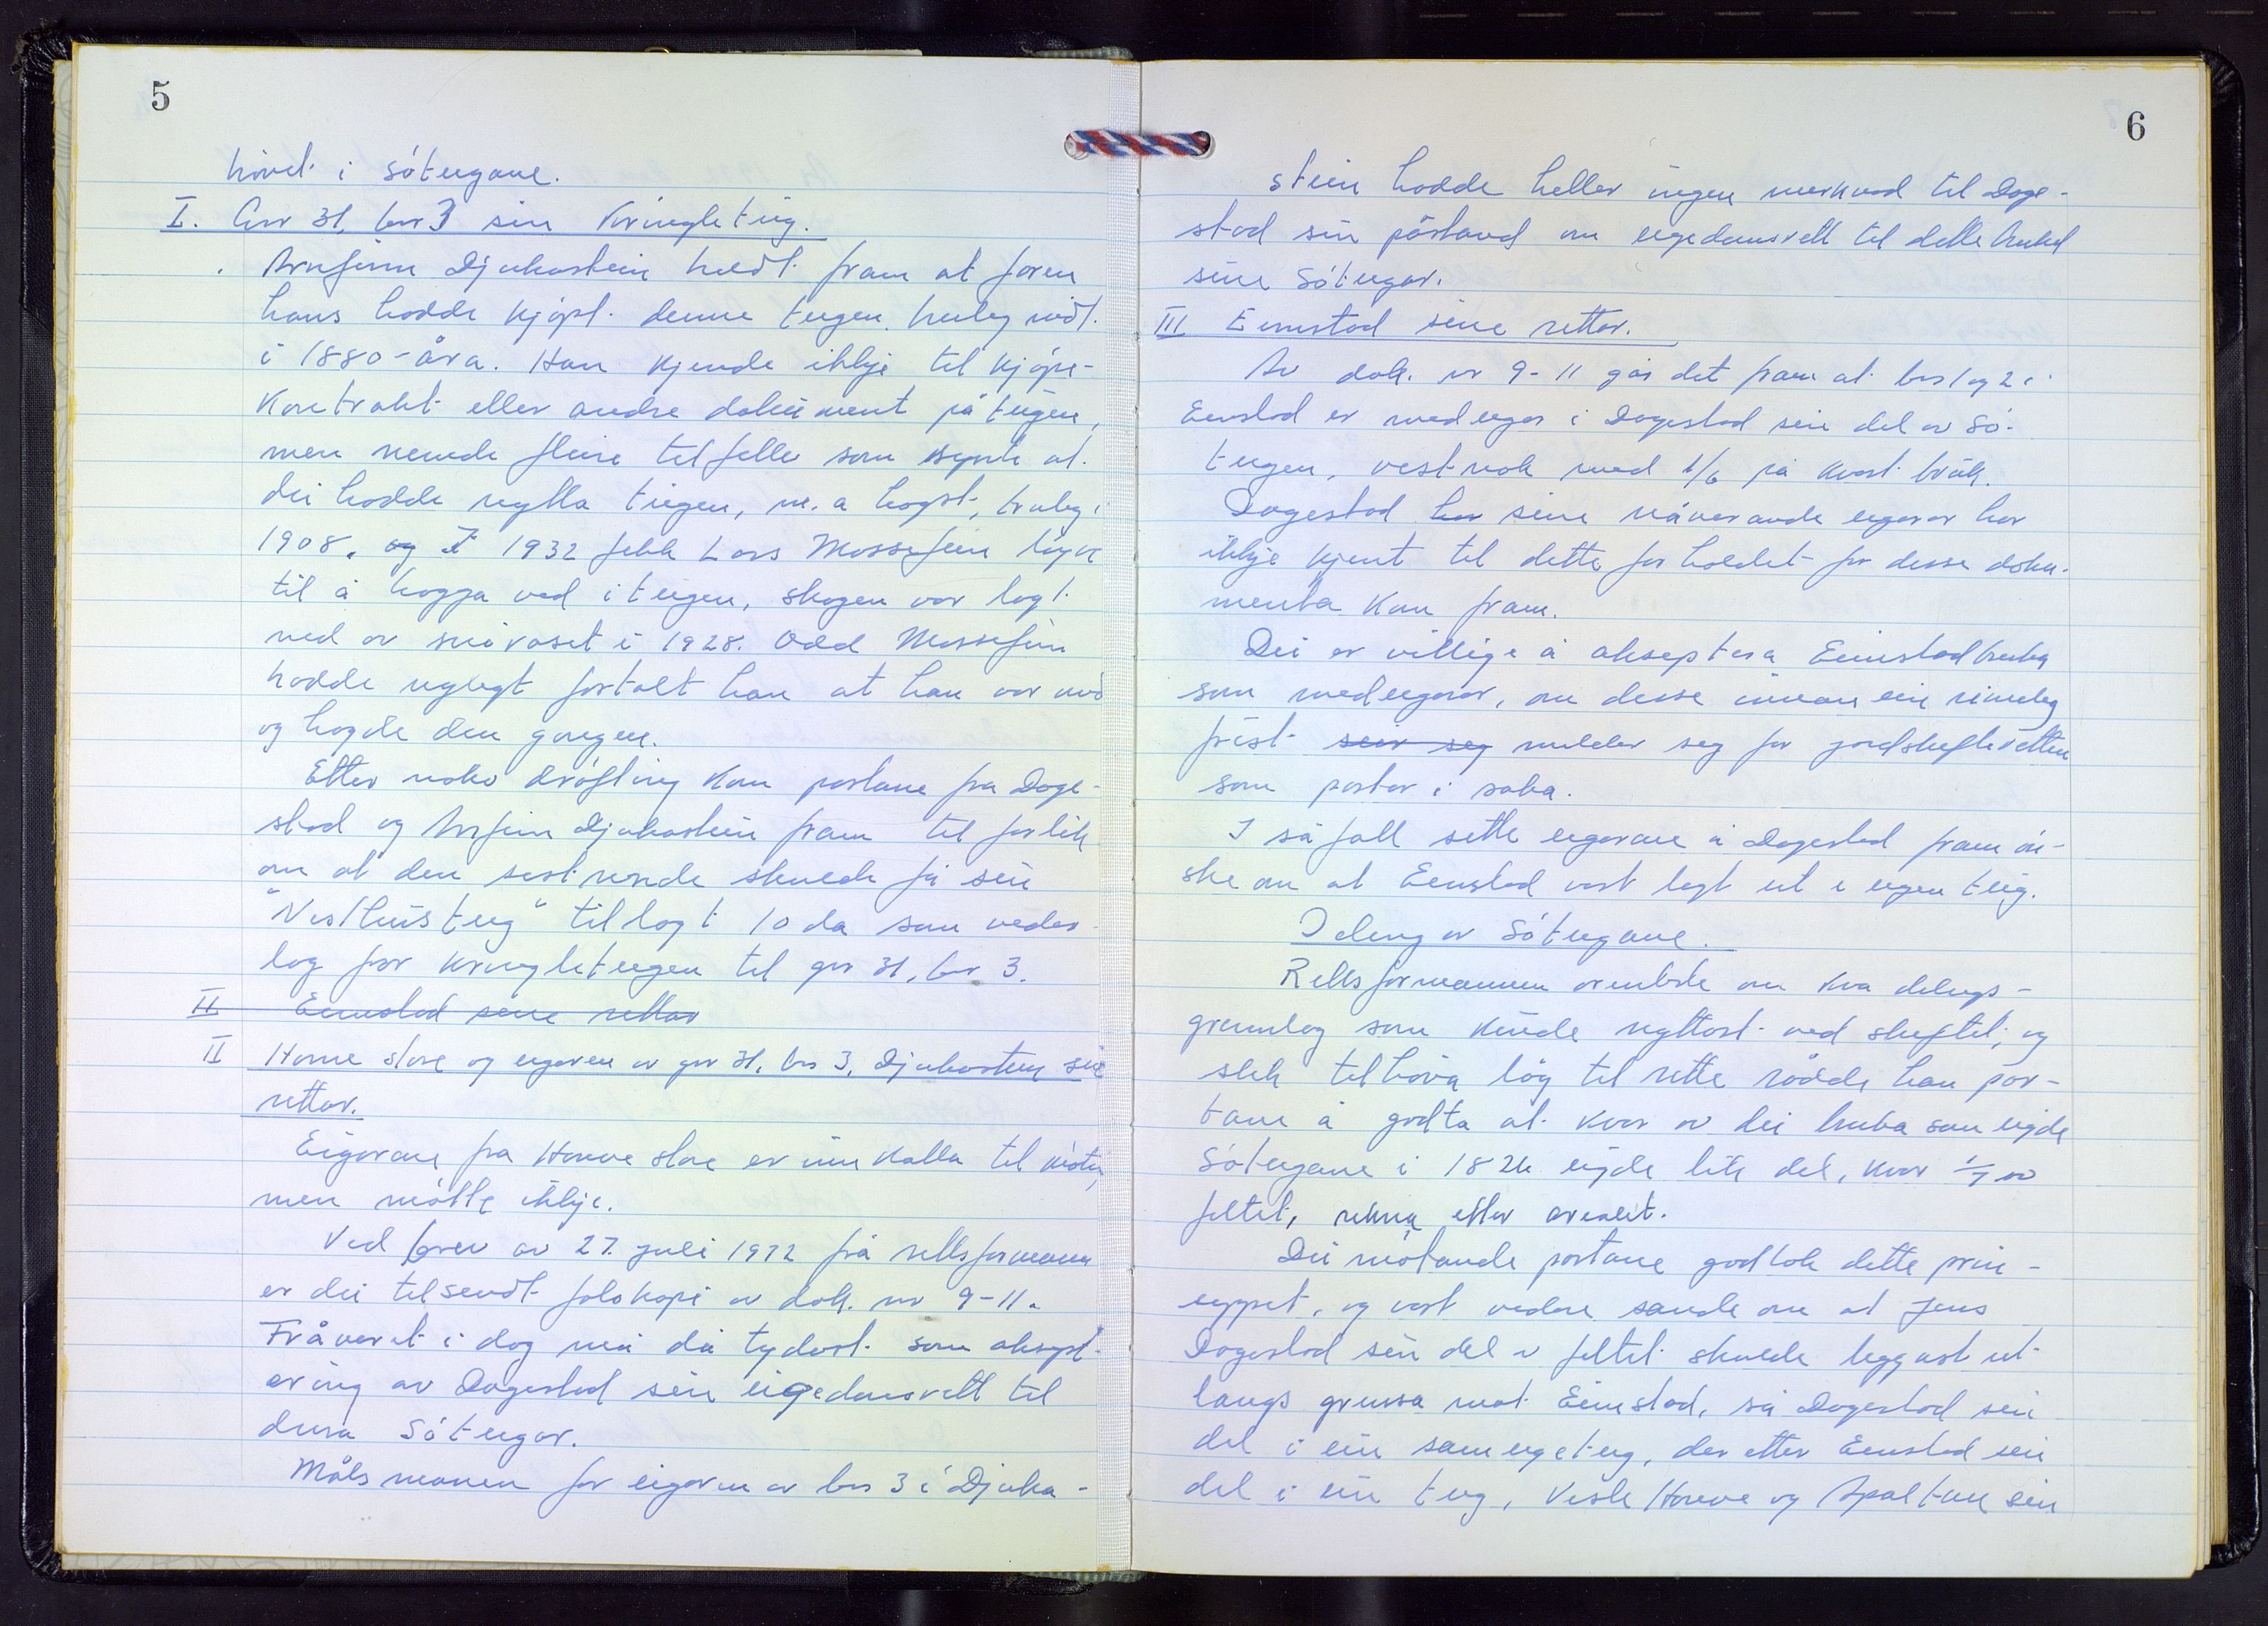 5
hövet i Söteigane.
I. Gnr 31, bnr 3 sin Kringleteig.
Arnfinn Djukastein heldt fram at faren
hans hadde kjöpt denne teigen truleg midt
i 1880-åra. Han kjende ikkje til kjöpe-
kontrakt eller andre dokument på teigen,
men nemde fleire tilfelle som synte at
dei hadde nytta teigen, m. a hogst, truleg i
1908. og I 1932 fekk Lars Mossefinn löyve
til å hogga ved i teigen, skogen var lagt
ned av snöraset i 1928. Odd Mossefinn
hadde nylegt fortalt han at han var med
og hogde den gongen.
Etter noko dröfting kom partane frå Dage-
stad og Arnfinn Djukastein fram til forlik
om at den sistnemnde skulde få sin
"Vesthusteig" tillagt 10 da som veder-
lag for Kringleteigen til gnr 31, bnr 3.
II Eimstad sine rettar
II Horne store og eigaren av gnr 31. bnr 3, Djukastein sine
rettar.
Eigarane frå Horne store er innkalla til möte,
men mötte ikkje.
Ved brev av 27. juli 1972 frå rettsformann
er dei tilsendt fotokopi av dok. nr 9-11.
Fråveret i dag må då tydast som aksept-
ering av Dagestad sin eigedomsrett til
dera Söteigar.
Målsmannen for eigaren av bnr 3 i Djuka-
6
stein hadde heller ingen merknad til Dage-
stad sin påstand om eigedomsrett til dette bruket
sine Söteigar.
III Eimstad sine rettar.
Av dok. nr 9-11 går det fram at bnr 1 og 2 i
Eimstad er medeigar i Dagestad sin del av Sö-
teigen, vestnok med 1/6 på kvart bruk.
Dagestad har sine nåverande eigarar har
ikkje kjent til dette forholdet för desse doku-
menta kom fram.
Dei er villige å akseptera Eimstadbruka
som medeigarar, om desse innan ein rimeleg
frist seier seg melder seg for jordskifteretten
som partar i saka.
I så fall sette eigarane å Dagestad fram ön-
ske om at Eimstad vart lagt ut i eigen teig.
Deling av Söteigane.
Rettsformannen orienterte om kva delings-
grunnlag som kunde nyttast ved skiftet, og
slik tilhöva låg til rette rådde han par-
tane å godta at kvar av dei bruka som eigde
Söteigane i 1824 eigde lik del, kvar 1/7 av
feltet, rekna etter arealet.
Dei mötande partane godtok dette prin-
sippet, og vart vedare samde om at Jens
Dagestad sin del i feltet skulde leggast ut
langs grensa mot Eimstad, så Dagestad sin
del i ein sameigeteig, der etter Eimstad sin
del i ein teig, Vesle Horne og Apaltun sin